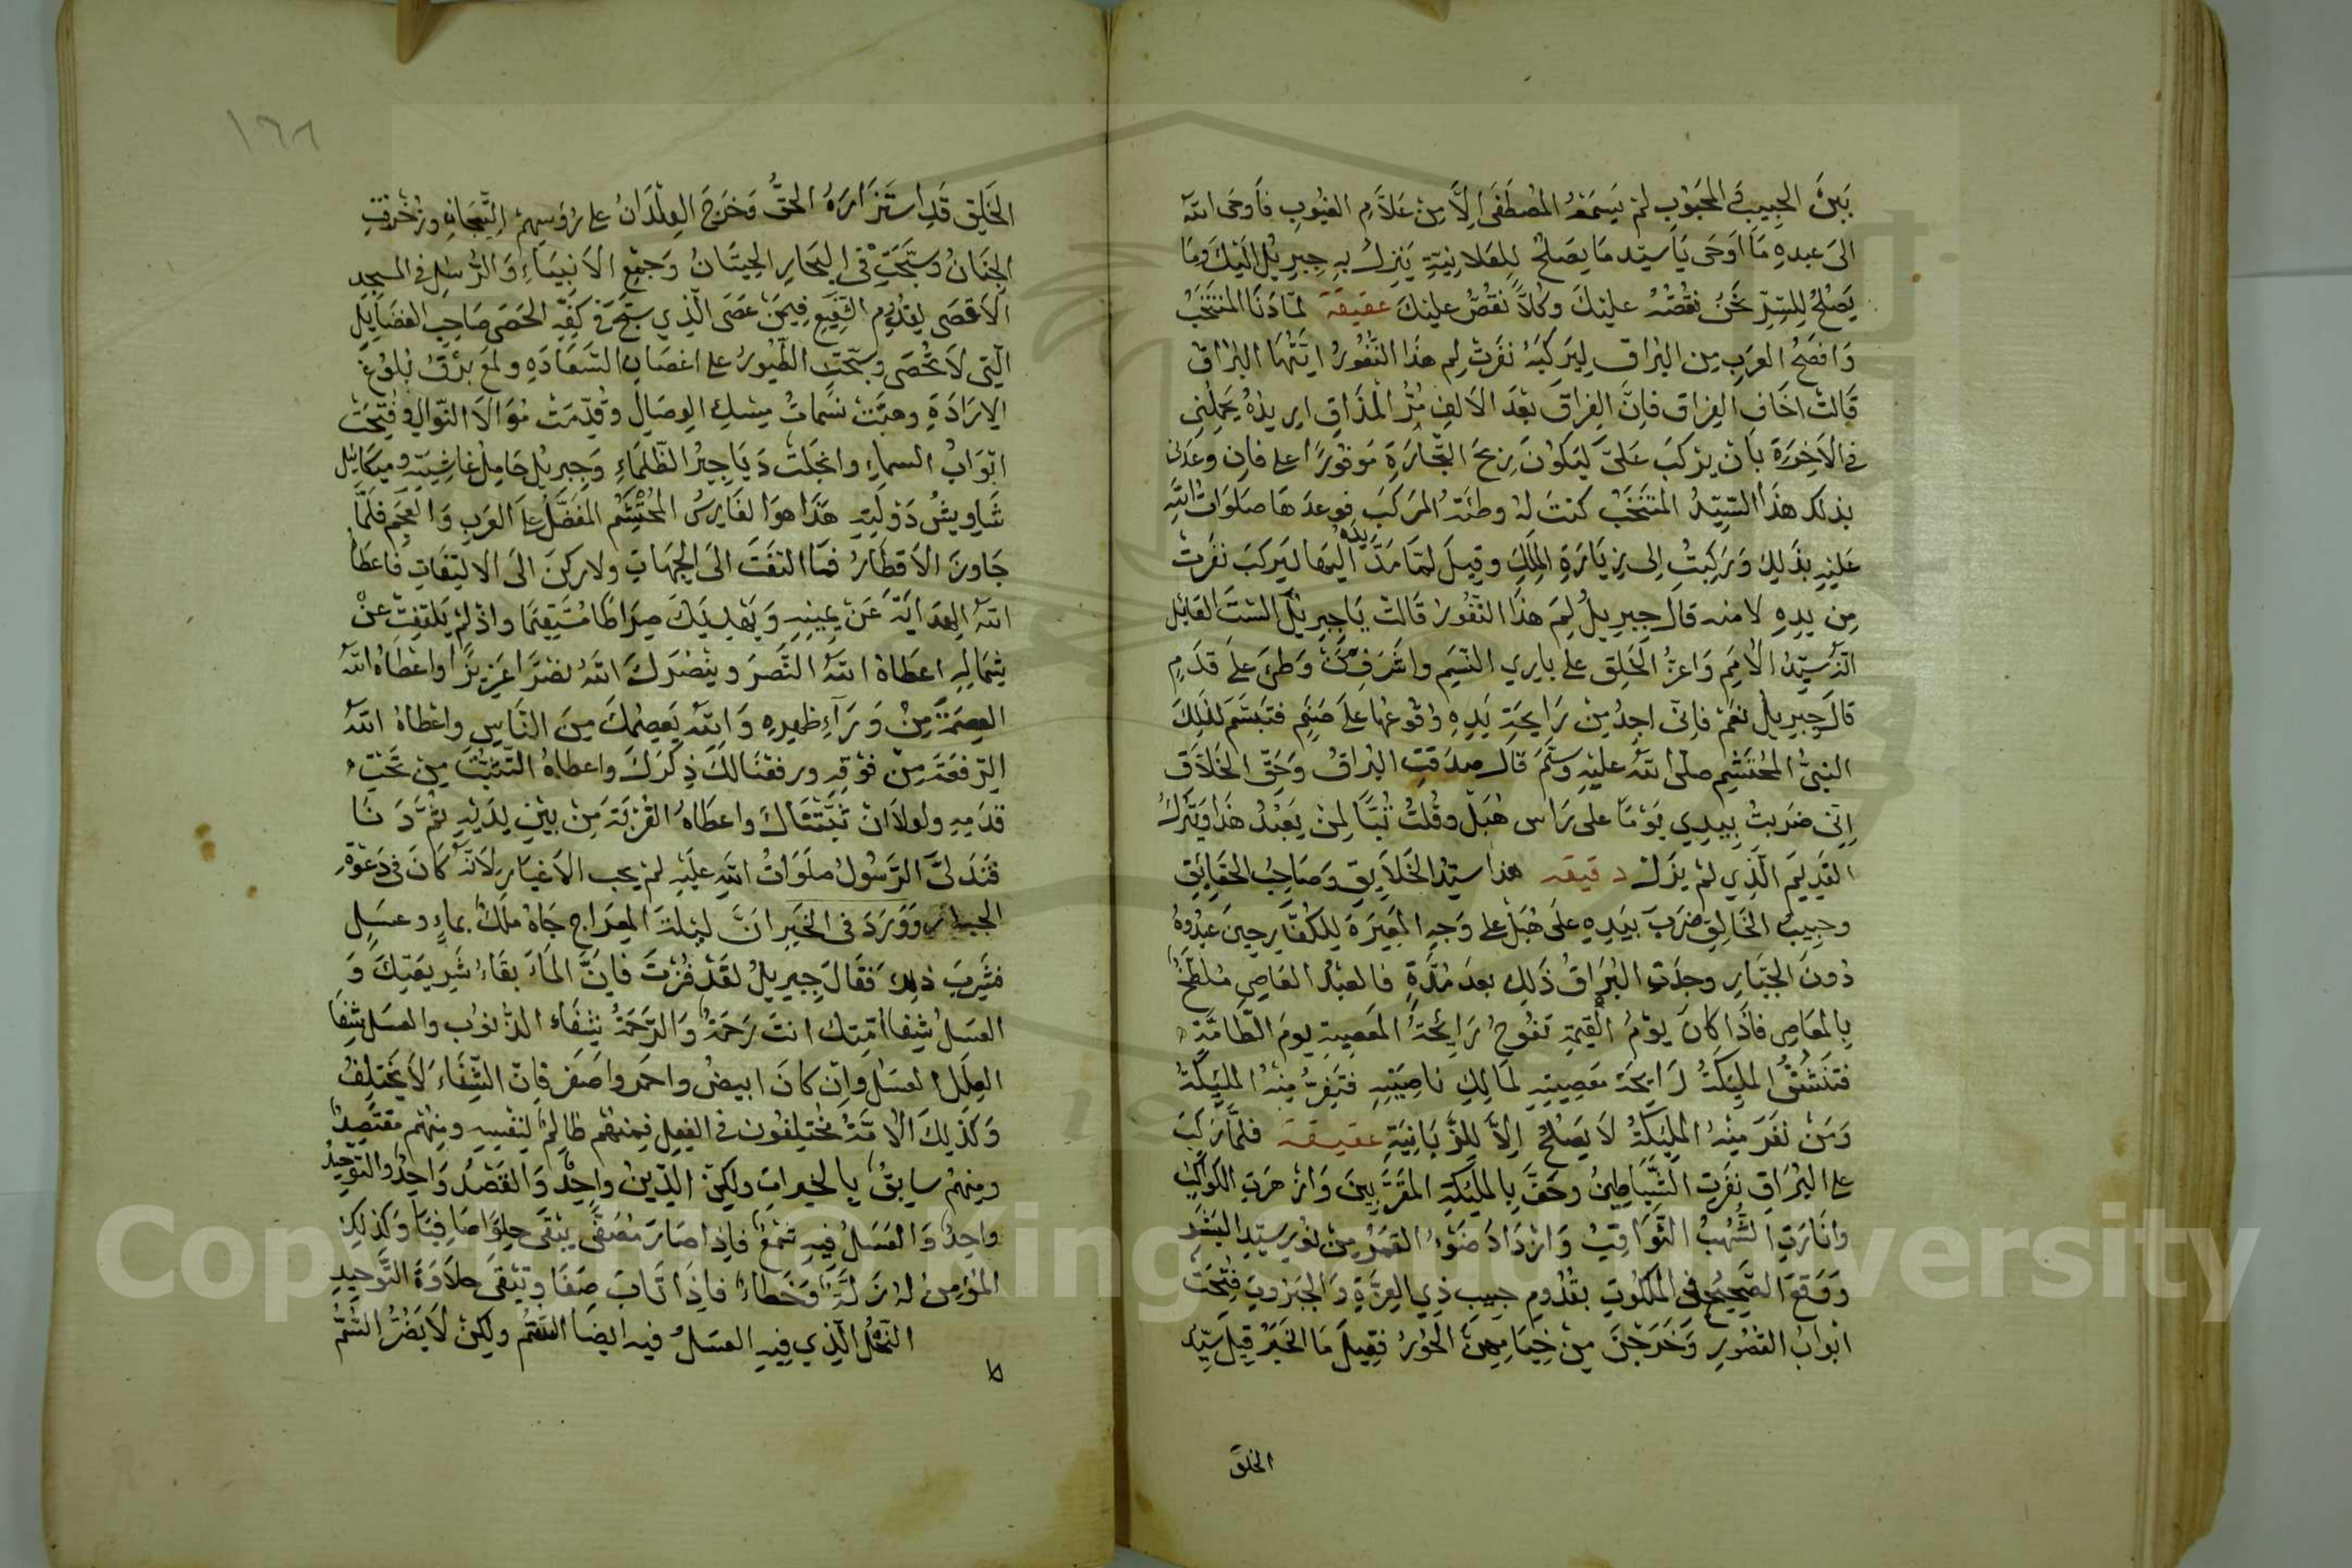 بَيْنَ الحَبِيبِ وَالمَحْبُوبِ لَمْ يَسْمَعْهُ المُصْطَفَى اِلَّا مِنْ عَلَّامِ الغُيُوبِ فَاَوحَى اللّٰه
الى عبدهِ مَا اَوحَى يَا سيّد مَا يَصلحُ لِلعَلانِيَّةِ يَنزِلُ بهِ جِبرِيلُ اِلَيكَ وَمَا
يَصْلحُ لِلسِّرِّ نَحْنُ نَقُصُّهُ عليكَ وكُلّاً نَقُصُّ عليكَ عقيقة لمّا دَنَا المُنتَخَبُ
وَافصَحُ العرَبِ مِن البُراقِ لِيَركَبَهُ نَفَرَتْ لِم هذَا النُّفُورُ ايّتُهَا البُرَاقُ
قَالت اخَاف الفِرَاق فانَّ الفِراقَ بَعْدَ الاَلفِ مُرُّ المَذَاقِ اريدُهُ يَحْمِلُنِي
فى الاَخِرَةِ بِاَن يَرْكَبَ عَلَىَّ لِيَكُونَ رِبحَ التِّجَارَةِ مَوفُورًا على فاِن وعَدَنى
بذلك هذَا السَّيِّدُ المُنتَخَبُ كنتَ لهُ وطئَة المَركَبَ فوعدَهَا صلوَاتُ اللّٰه
عَلَيهِ بذَلِكَ وَرَكِبَتُ اِلى زِيَارَةِ المَلِكِ وقِيلَ لمّا مَدَّ يدَهُ اليهَا ليَركَبَ نَفَرتْ
مِن يدِهِ لامنه قالَ جِبرِيلُ لِمَ هذَا النُّفُورُ قَالت يَا جِبرِيلُ الستَ القَايل
انّهُ سيّدُ الاُمَمِ وَاعزُّ الخَلقِ على بَارِي النّسَمِ واشرَفُ مَن وَطِىَ علَى قدَمٍ
قالَ جِبرِيلُ نعَمْ فاِنّى اجِدُ مِنْ رَايحَةِ يَدِهِ وقُوعَهَا علَى صَنَمٍ فتبسّمَ لذلكَ
النبىُّ المُحتشم صلّى اللّٰه عليه وسلّمَ قالَ صدَقَتِ البُراقُ وَحَقِّ الخَلّاقِ
اِنِّى ضرَبتُ بِيَدِي يَوْمًا على رَاس هُبَل وقُلتُ تَبًّا لمنْ يَعْبُدُ هذَا وَيَتْرُكُ
القَدِيمَ الّذِي لمْ يزَل دقيقه هذا سيّدُ الخَلَايقِ وَصَاحِبُ الحَقَايِقِ
وحَبِيبُ الخَالِقِ ضَرَبَ بيَدِهِ علَى هُبَلَ على وَجهِ المَعيَرَةِ لِلكفّارِ حِينَ عَبدُوهُ
دُونَ الجَبّارِ وجدَتِ البُرَاقُ ذَلِك بعدَ مُدَّةٍ فالعبدُ العَاصِي مُلَطَّخٌ
بِالمَعاصِى فاِذَا كانَ يوْمُ القِيمَةِ تَفُوحُ رَائِحَةُ المَعصِيةِ يومَ الطّامَّةِ
فتَنْشَقُّ المليكَةُ رَايحَةَ مَعصِيتِهِ لمَالِكِ ناصِيَتِهِ فتنفِرُ مِنهُ الملَيكَةُ
وَمَنْ نَفَرَ مِنْهُ المليكَةُ لَا يَصْلحُ اِلَّا لِلزّبَانِيَةِ عقيقة فلمَّا رَكِبَ
على البُرَاقِ نفَرتِ الشّيَاطِينُ وحَفَّ بِالمليكَةِ المُقَرّبِينَ وَازهَرَتِ الكَوَاكِبُ
وانَارَتِ الشُّهُبُ الثّوَاقِبُ وَازدَادَ ضَوْءُ القمَرِ مِنْ نُورِ سيّدِ البَشَرِ
وَوَقعَ الصَّحِيحُ فى المَلَكُوتِ بقُدُومِ حَبيب ذِي العِزَّةِ وَالجَبرُوتِ فُتِحَتْ
ابْوَابُ القُصُورِ وَخَرَجْنَ مِنْ خِيَامِهِنَّ الحُورُ فقِيلَ مَا الخَبرُ قِيلَ سيّدُ
الخلق
١٦٨
الخَلقِ قَدِ استَزَارَهُ الحَقُّ وَخرَجَ الوِلْدَانُ على رُؤسِهِمْ التِّيجَانِ وزُخْرِفَتِ
الجِنَانُ وسَبَّحَتِ فى البِحَارِ الحِيتَانُ وَجُمِعَ الاَنبِيَاءُ وَالرُّسُلُ فى المسجِدِ
الاَقصَى لِقُدُومِ الشَّفِيعِ فِيمَنْ عَصَى الّذِي سَبَّحَ فى كَفِّهِ الحَصَى صَاحِبِ الفَضَايِلِ
الّتِى لَا تُحْصَى وسبّحَتِ الطّيُورُ على اغصَانِ السَّعَادَةِ ولمَعَ بَرْقُ بُلوْغ
الاِرَادَةِ وهبَّتْ نَسَماتُ مِسكِ الوِصَالِ وقُدِّمَتْ مُوَالَا النّوَالِ وفُتِحَتْ
ابْوَابُ السماءِ وانجَلتْ دَيَاجِيرُ الظّلمَاءِ وَجِبرِيلُ حَامِلُ غَاشِيَتِهِ وميكايِيل
شَاوِيشُ دَوْلَتِهِ هَذَا هوَ الفَارِسُ المُحتَشَمُ المُفَضَّلُ على العَرَبِ وَالعَجَمِ فلَمّا
جَاوزَ الاَقطَارَ فمَا التفَتَ الىَ الجِهَاتِ ولا ركَنَ الىَ الالتِفَاتِ فاعطَاهُ
اللّٰه الهِدَايَةَ عَنْ يمِينِهِ وَيَهْدِيَكَ صِرَاطًا مُستَقِيمًا واذْ لم يَلتفِتْ عنْ
شِمَالِهِ اعطَاهُ اللّٰه النَّصرَ وينْصُرَكَ اللّٰه نصْرًا عَزِيزًا واعْطَاهُ اللّٰه
العِصمَةَ مِنْ وَرَآءِ ظهرِهِ وَاللّٰه يَعصِمُكَ مِنَ النّاسِ واعْطَاهُ اللّٰه
الرِّفعَةَ مِنْ فوْقِهِ ورفعْنَا لكَ ذِكرَكَ واعطاهُ التّثبُّتَ مِنْ تَحْتِ
قدَمِهِ ولولَا انْ ثَبَّتْنَاكَ واعطَاهُ القُرْبَةَ مِنْ بَيْنِ يَدَيْهِ ثُمَّ دَنَا
فتَدَلىَّ الرَّسُولُ صلَوَاتُ اللّٰه عليْهِ لمْ يجب الاَغيَارِ لاَنّهُ كَانَ فى دَعْوَةِ
الجبار وَوَرَدَ فى الخَبرِ انَّ ليْلةَ المِعرَاجِ جَاهُ ملَكٌ بماءٍ وعسَلٍ
فشَرِبَ ذلك فقَالَ جِبرِيلُ لقَدْ فُزْتَ فاِنَّ المَاءَ بقَاءُ شَرِيعَتِكَ وَ
العسَلُ شِفا اُمّتِك انتَ رَحمَةٌ وَالرَّحمَةُ شِفَاء الذّنوُب والعسَل شِفَا
العِلَل العسَل وان كانَ ابيضُ واحمَر واصَفر فاِنّ الشِّفَاءَ لَا يَختَلِفُ
وَكذَلِكَ الاُمّةُ مُختلِفُون فى الفِعلِ فمِنهُم ظالِمٌ لنفسِهِ ومِنهُم مُقتَصِدٌ
ومِنهُم سابِقٌ بالخيراتِ ولكِنّ الدِّينُ واحِدٌ وَالقَصْدُ وَاحِدٌ والتوحيدُ
واحِدٌ وَالعَسَلُ فيهِ شَمْعٌ فاِذا صَارَ مُصَفًّى يبْقَى حِلوًا صَافِيًا وَكذلِكَ
المُؤمِنُ لهُ زلّةٌ وَخَطَاءٌ فاِذَا تَابَ صَفَا ويَبْقَى حلَاوَةُ التَّوحِيدِ
النّحْلُ الّذِي فيهِ العسَلُ فيه ايضا السّمُّ ولكِنْ لَا يَضُرُّ السَّمُّ